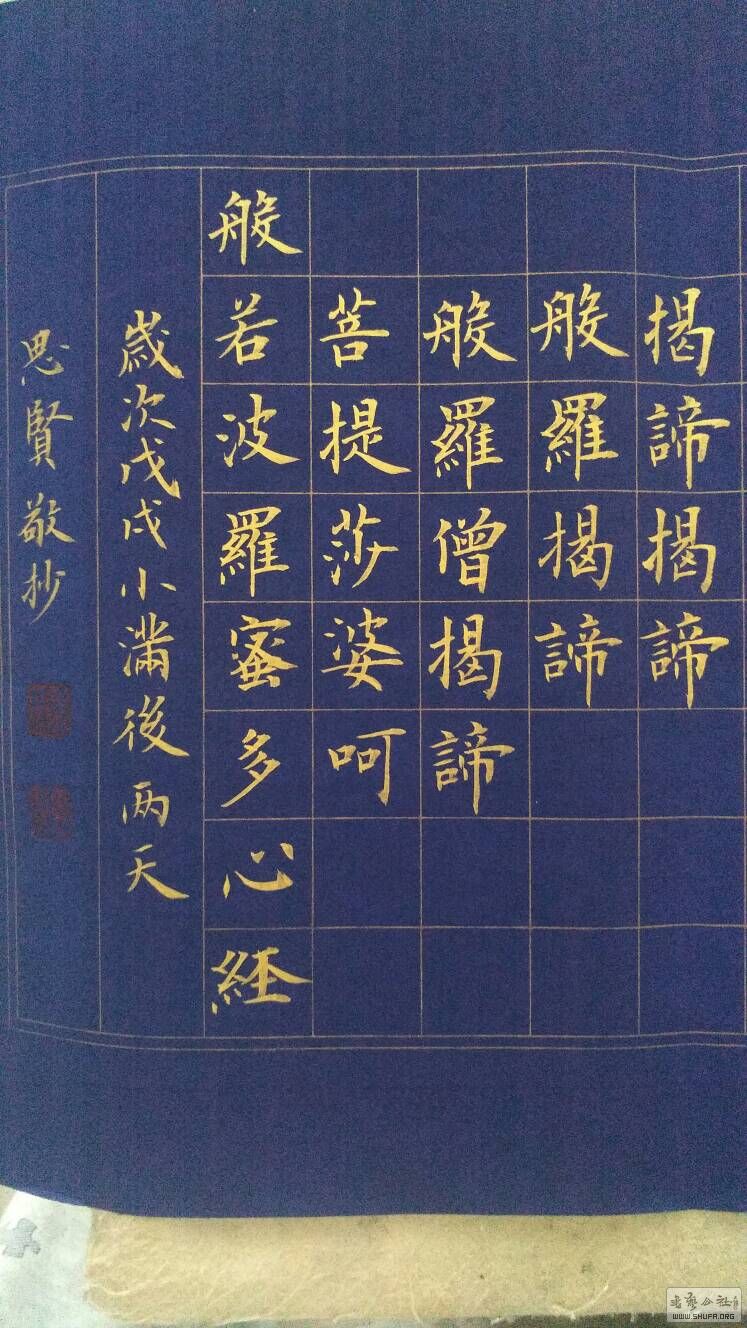 揭諦揭諦
般羅揭諦
般羅僧揭諦
菩提莎婆呵
般若波羅蜜多心経
嵗次戊戌小滿後两天
思賢敬抄
WWW.SHUFA.ORG